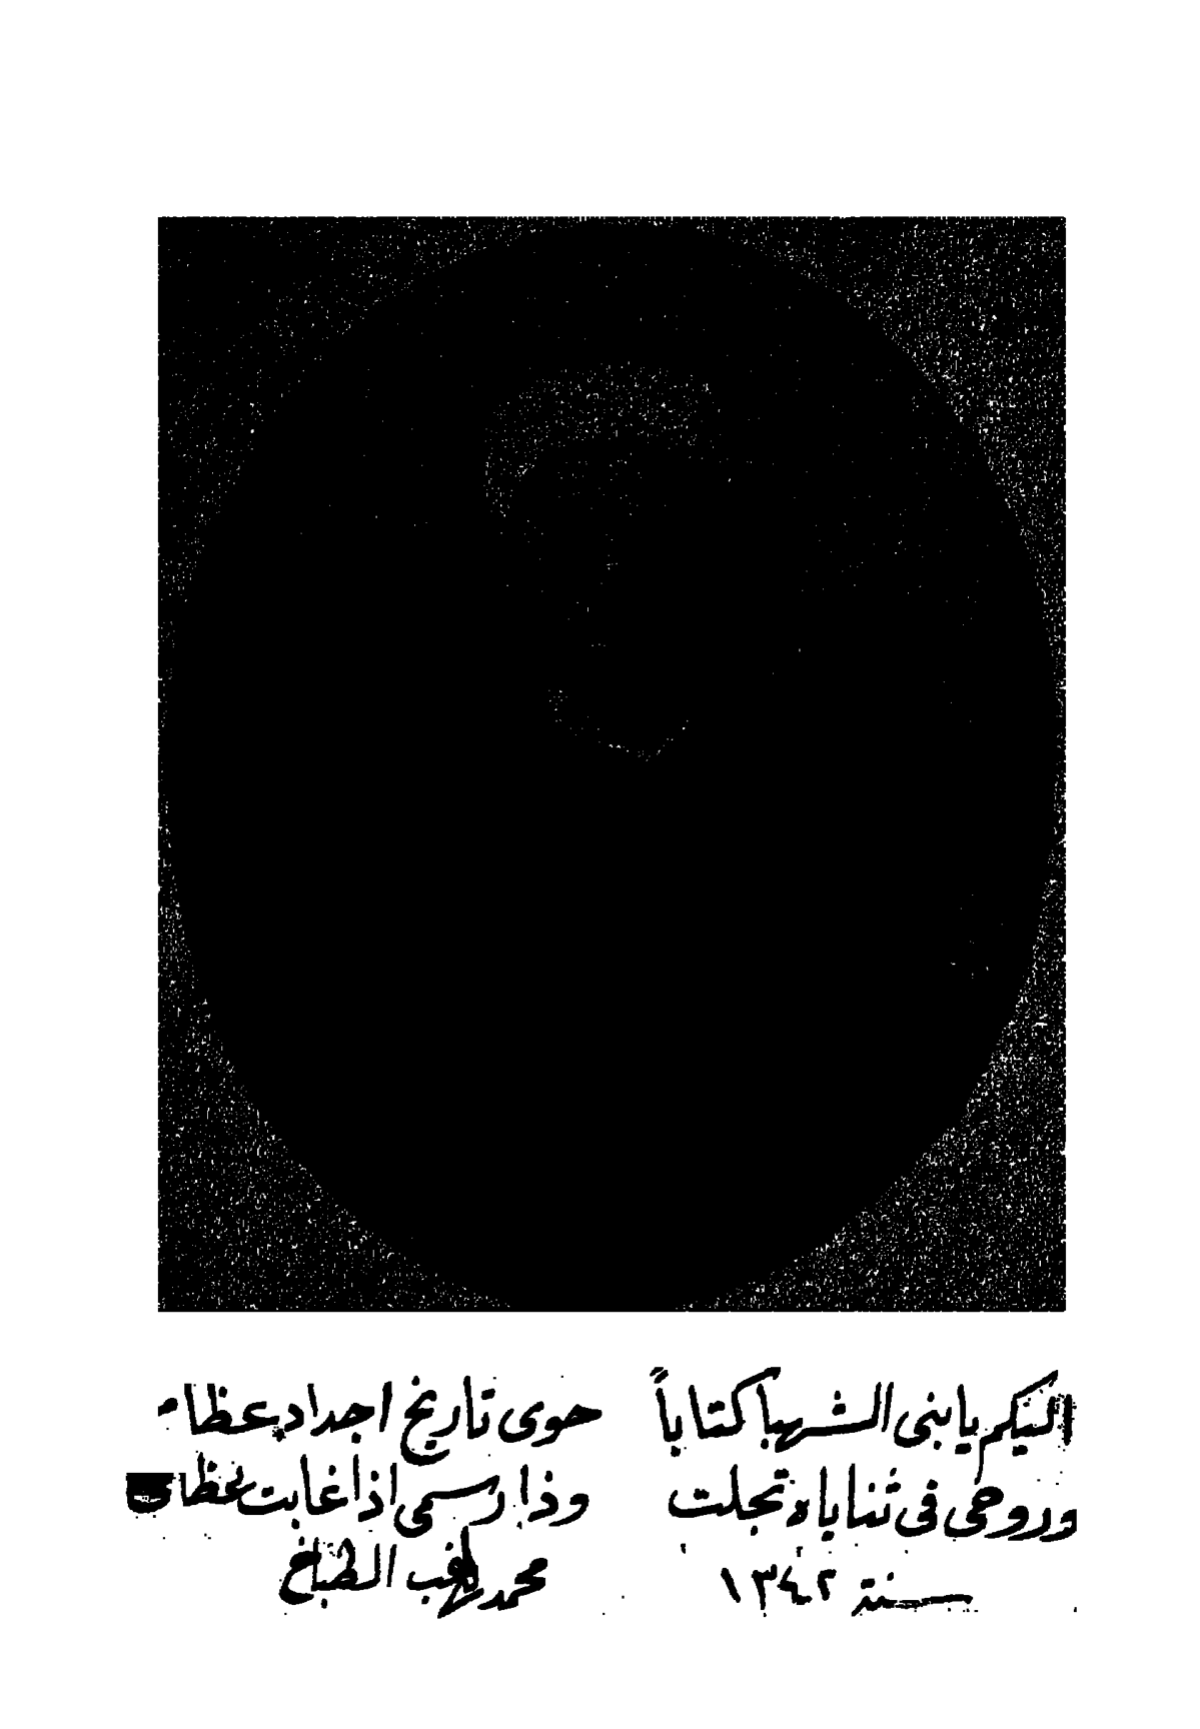 اليكم يا بنى الشهبا كتاباً حوى تاريخ اجداد عظام
وروحى فى ثناياه تجلت وذا رسمى اذا غابت
سنة ١٣٤٢ محمد راغب الطباخ